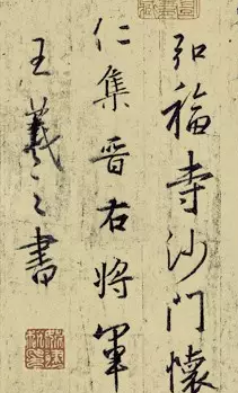 弘福寺沙门懷
仁集晋右将軍
王羲之書